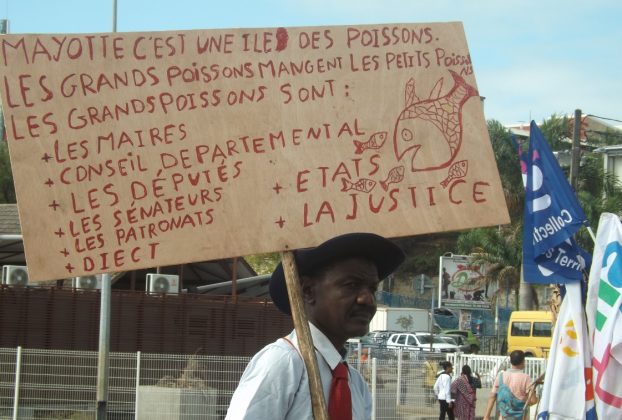 MAYOTTE C'EST UNE ILE DES POISSONS.
LES GRANDS POISSONS MANGENT LES PETITS POISSONS
LES GRANDS POISSONS SONT :
+ LES MAIRES
+ CONSEIL DEPARTEMENTAL
+ LES DÉPUTÉS
+ LES SÉNATEURS
+ LES PATRONATS
+ DIECT
+ ETATS
+ LA JUSTICE
Collectiv
Terri